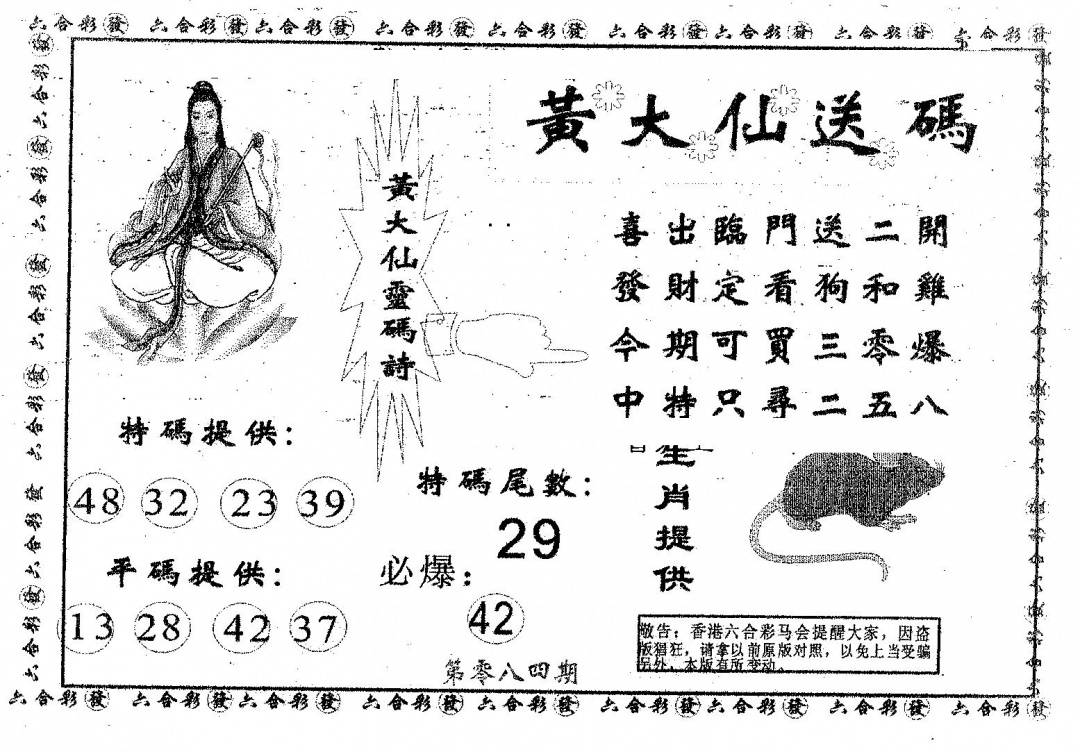 六合彩發 六合彩發 六合彩發 六合彩發 六合彩發 六合彩發 六合彩發 六合彩發 六合彩發
黃大仙送碼
黃大仙靈碼詩
喜出臨門送二開
發財定看狗和雞
今期可買三零爆
中特只尋二五八
特碼提供：
48 32 23 39
平碼提供：
13 28 42 37
特碼尾數：
29
必爆：
42
第零八四期
生肖提供
敬告：香港六合彩马会提醒大家，因盗
版猖狂，请拿以前原版对照，以免上当受骗
另外，本版有所变动。
六合彩發 六合彩發 六合彩發 六合彩發 六合彩發 六合彩發 六合彩發 六合彩發 六合彩發